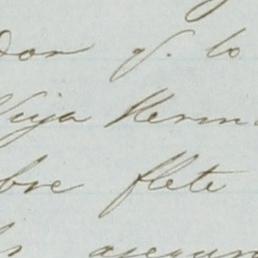 dor q. lo
Vija Herm
bre flete
asegun